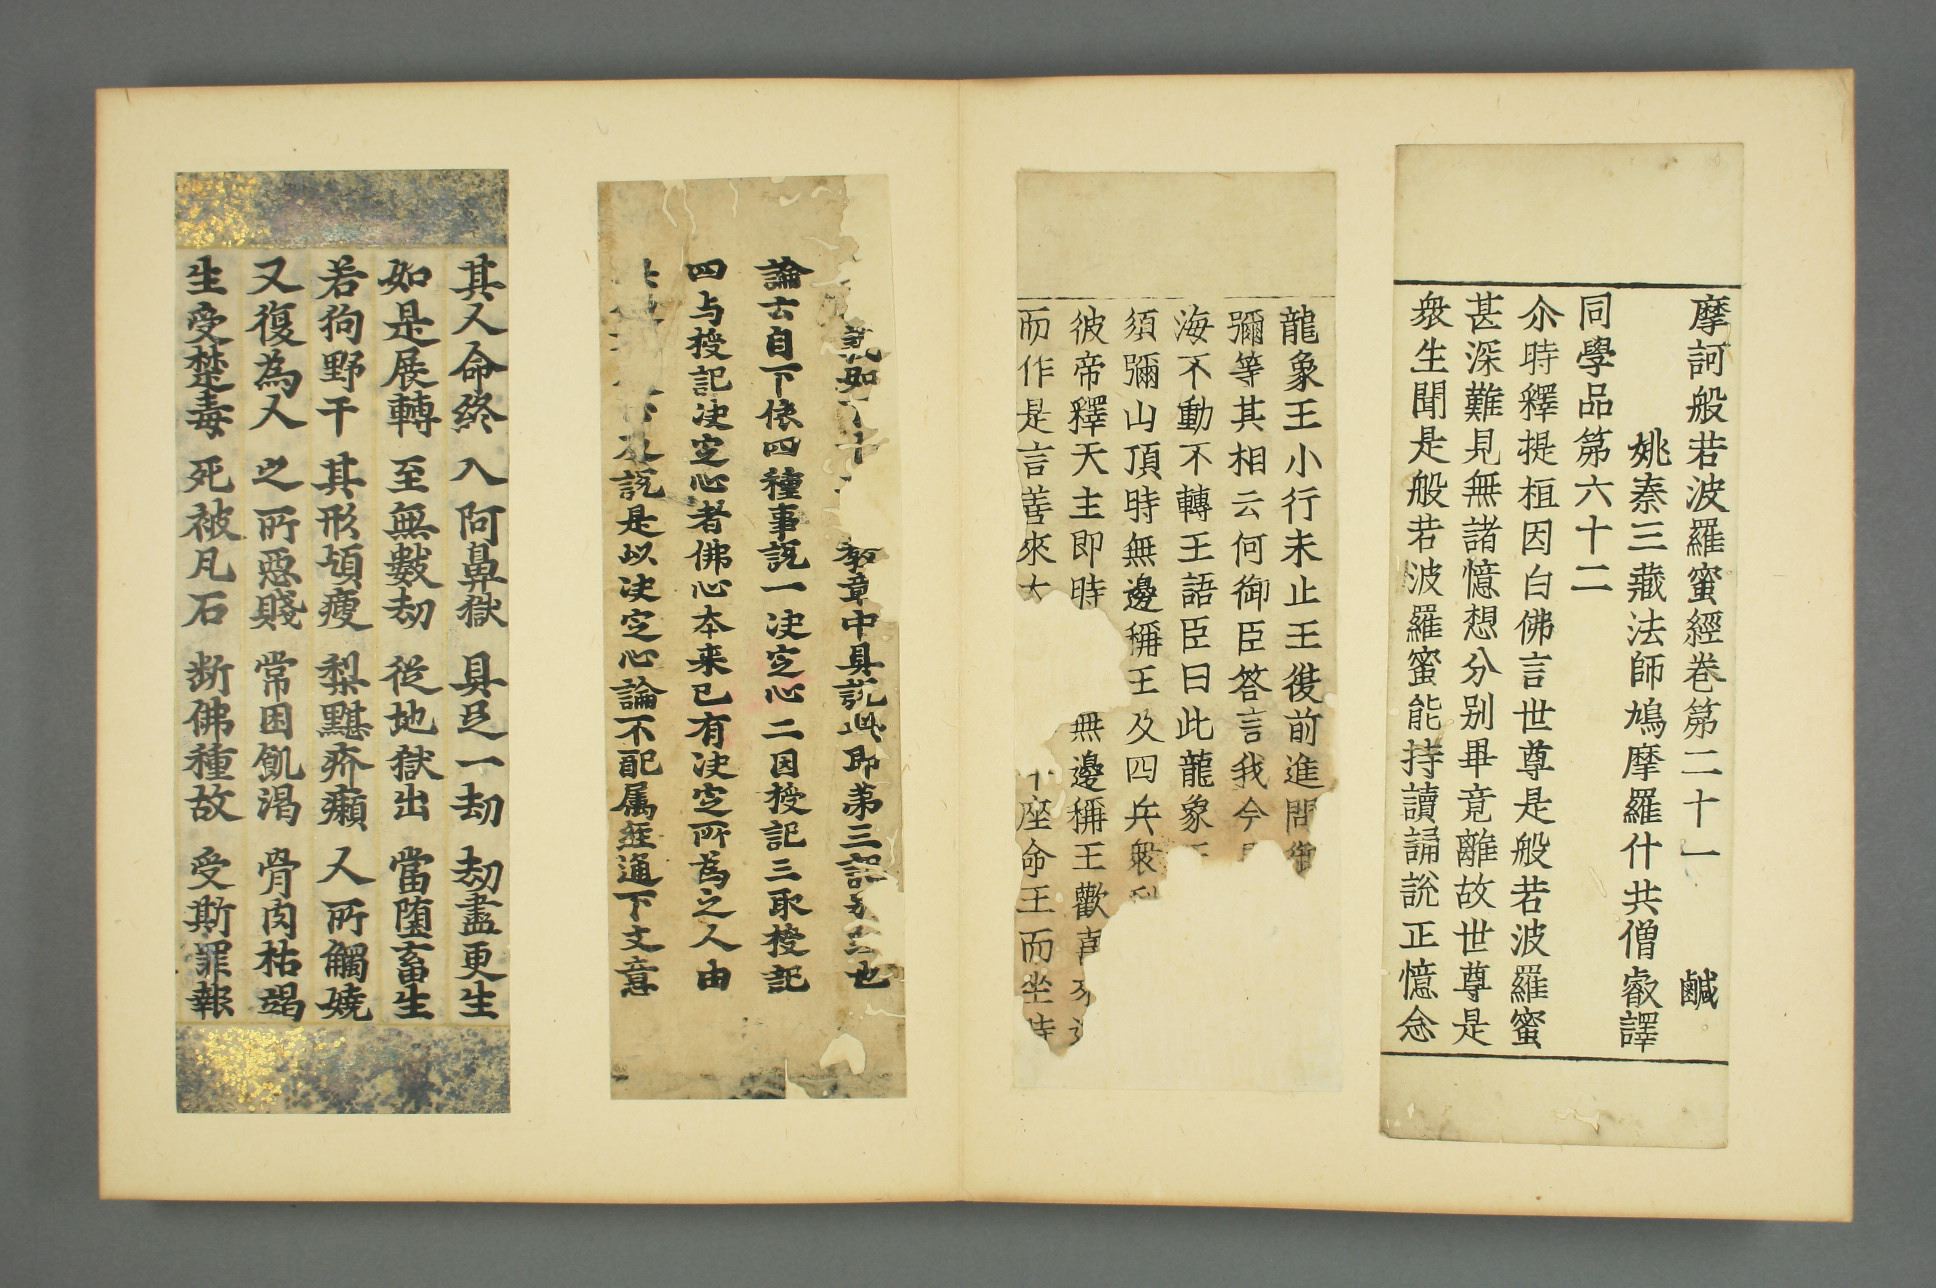 摩訶般若波羅蜜經卷第二十一 鹹
姚秦三藏法師鳩摩羅什共僧叡譯
同學品第六十二
尒時釋提桓因白佛言世尊是般若波羅蜜
甚深難見無諸憶想分別畢竟離故世尊是
衆生聞是般若波羅蜜能持讀誦說正憶念
龍象王小行未止王復前進問御
彌等其相云何御臣答言我今
海不動不轉王語臣曰此龍象
須彌山頂時無邊稱王及四兵衆
彼帝釋天主即時 無邊稱王歡喜
而作是言善來大 座命王而坐時
如 教章中具説此即第三記 也
論云自下依四種事説一决定心二因授記三取授記
四与授記决定心者佛心本来已有决定所為之人由
及説是以决定心論不配属經通下文意
其人命終 入阿鼻獄 具足一劫 劫盡更生
如是展轉 至無數劫 從地獄出 當墮畜生
若狗野干 其形㿃瘦 梨黮疥癩 人所觸嬈
又復為人 之所惡賤 常困飢渴 骨肉枯竭
生受楚毒 死被凡石 斷佛種故 受斯罪報